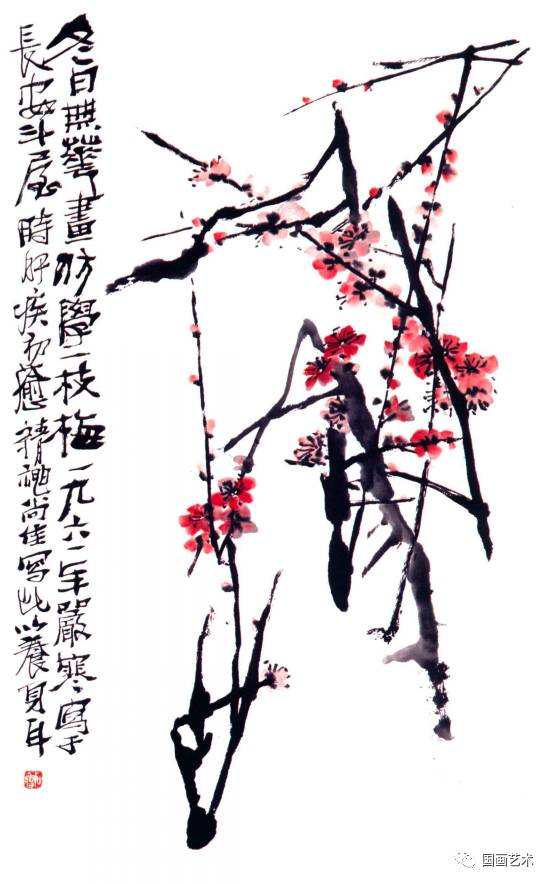 冬日無華畫仿學一枝梅一九六一年嚴寒寫于
長安斗屋時肝疾初癒精尚佳写此以養身耳
国画艺术